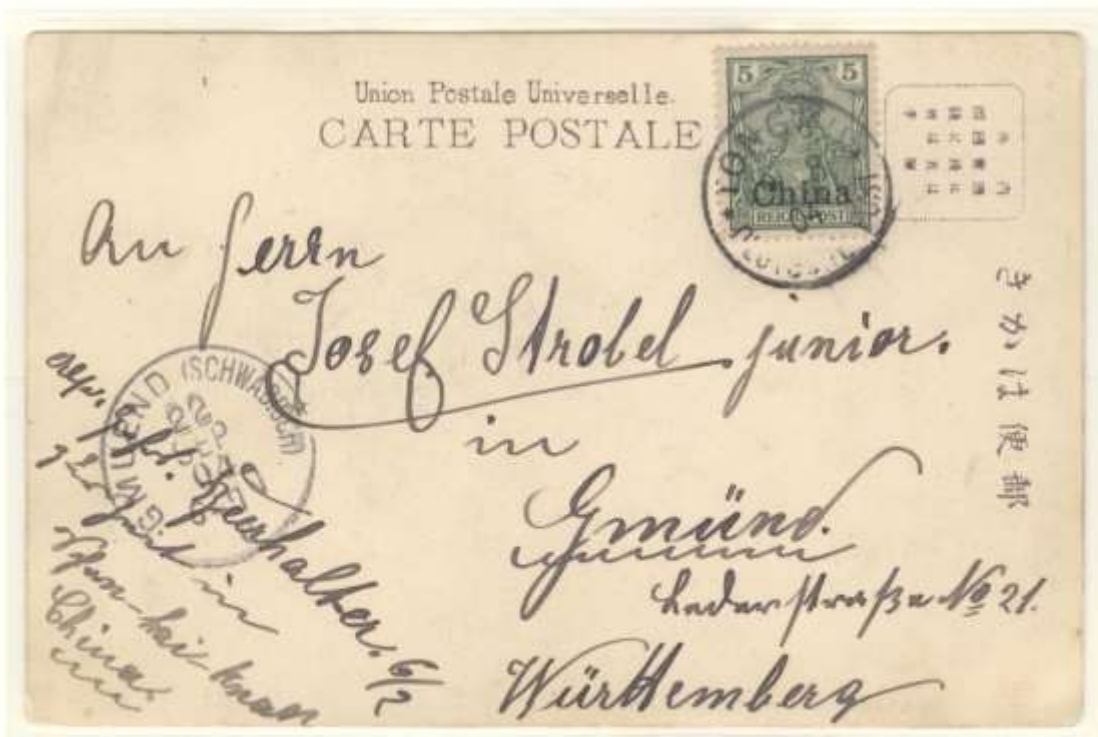 Union Postale Universelle.
CARTE POSTALE
5 5
China
REICHSPOST
TONGKU
郵便はかき
An Herrn
Josef Strobel junior.
in
Gmünd.
Lederstraße No 21.
Württemberg
GMUEND (SCHWÄBISCH)
zur Zeit in
Schan-hai-kwan
China